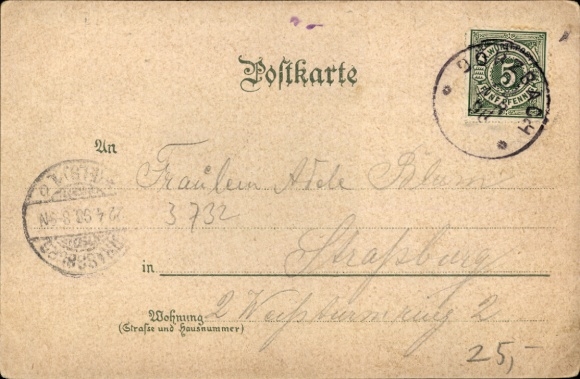 Postkarte
5
FÜNF PFENNIG
An Fräulein Adele Blum
3732
in Straßburg
Wohnung 2 Weißturmring 2
(Straße und Hausnummer)
25,-